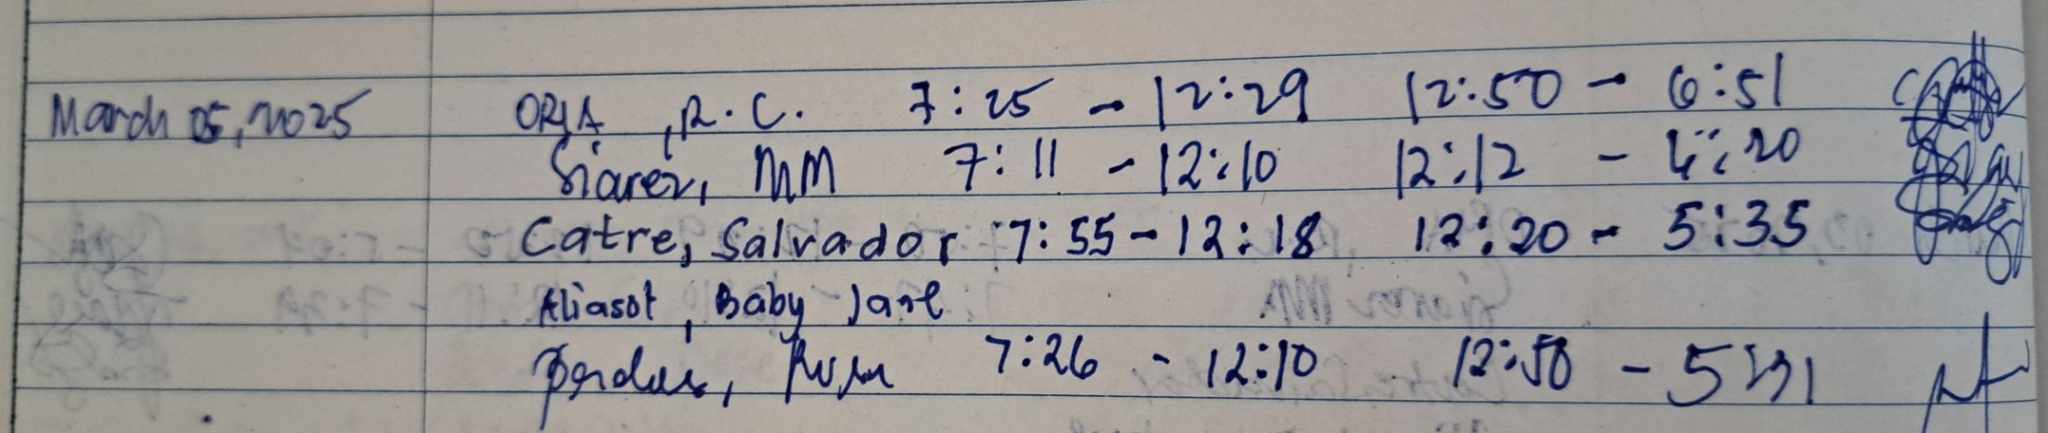 March 05, 2025 ORJA, R.C. 7:25 - 12:29 12:50 - 6:51
Siarez, MM 7:11 - 12:10 12:12 - 4:20
Catre, Salvador 7:55 - 12:18 12:20 - 5:35
Aliasot, Baby Jane
7:26 - 12:10 12:50 - 5:31